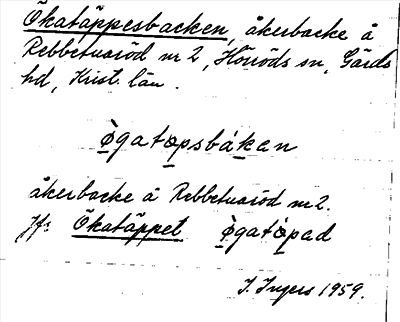 Ökatäppesbacken, åkerbacke å
Rebbetuaröd nr 2, Hörröds sn, Gärds
hd, Krist. län.
ø̀gatøpsbákan
åkerbacke å Rebbetuaröd nr 2.
Jfr Ökatäppet ø̀gatø̀pad
I. Ingers 1959.